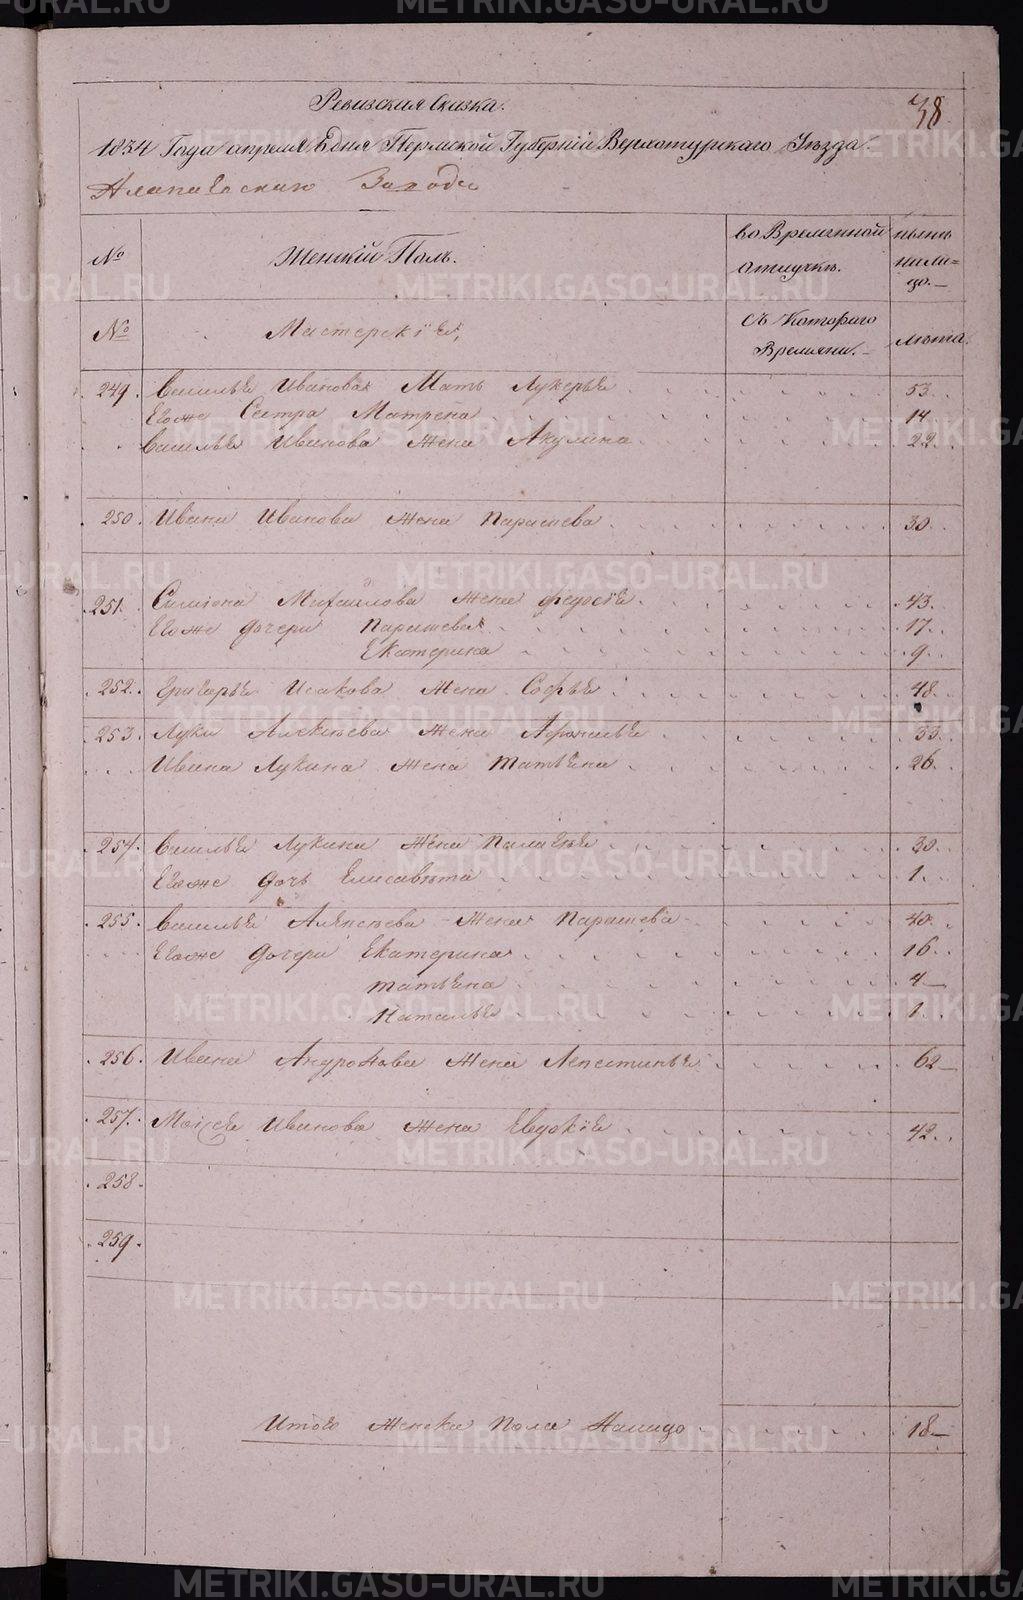 38
Ревизская Сказка.
1834 Года апреля Едня Пермской Губерніи Верхотурскаго Уѣзда.
Алапаевскаго Завода
№ Женскій Полъ. во Временной отлучкѣ. нынѣ на ли=цо.
№ Мастерскіе, Съ Котораго Времяни. лѣта.
249. Василья Иванова Мать Лукерья 53.
Егоже Сестра Матрена 14
Василья Иванова Жена Акулина 22.
250. Ивана Иванова Жена Парасцева 30.
251. Симіона Михайлова Жена Федосія 43.
Егоже дочери Парасцева 17.
Екатерина 9.
252. Григорья Исакова Жена Софья 48.
253. Луки Алексѣева Жена Афонасья 53.
Ивана Лукина Жена Татьяна 26.
254. Василья Лукина Жена Палагѣя 30.
Егоже дочь Елисавѣта 1.
255. Василья Алексѣева Жена Парасцева 40.
Егоже дочери Екатерина 16.
Татьяна 4
Наталья 1.
256. Ивана Андронова Жена Лепестинья 62
257. Моисея Иванова Жена Евдокія 42.
258.
259.
Итого Женска Пола Налицо 18
METRIKI.GASO-URAL.RU